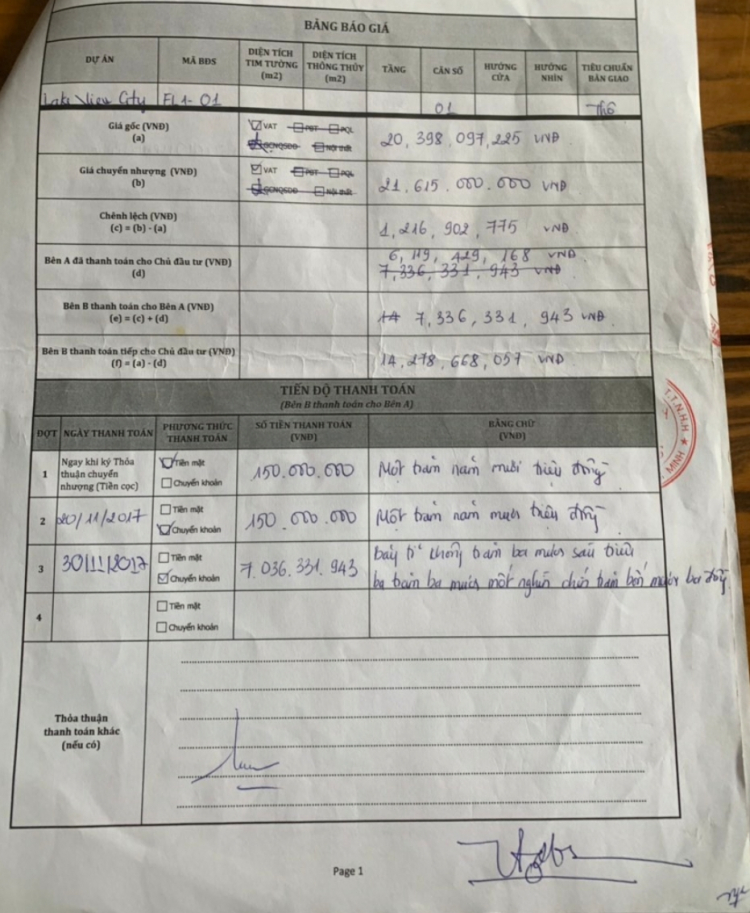 BẢNG BÁO GIÁ
DỰ ÁN MÃ BĐS DIỆN TÍCH TIM TƯỜNG (m2) DIỆN TÍCH THÔNG THỦY (m2) TẦNG CĂN SỐ HƯỚNG CỬA HƯỚNG NHÌN TIÊU CHUẨN BÀN GIAO
Lake View City FL1-01 01 Thô
Giá gốc (VNĐ) (a) VAT PBT PQL GCNQSDĐ Nội thất 20,398,097,225 VNĐ
Giá chuyển nhượng (VNĐ) (b) VAT PBT PQL GCNQSDĐ Nội thất 21.615.000.000 VNĐ
Chênh lệch (VNĐ) (c) = (b) - (a) 1,216,902,775 VNĐ
Bên A đã thanh toán cho Chủ đầu tư (VNĐ) (d) 6,119,429,168 VNĐ
7,336,331,943 VNĐ
Bên B thanh toán cho Bên A (VNĐ) (e) = (c) + (d) 14 7,336,331,943 VNĐ
Bên B thanh toán tiếp cho Chủ đầu tư (VNĐ) (f) = (a) - (d) 14,278,668,057 VNĐ
TIẾN ĐỘ THANH TOÁN
(Bên B thanh toán cho Bên A)
ĐỢT NGÀY THANH TOÁN PHƯƠNG THỨC THANH TOÁN SỐ TIỀN THANH TOÁN (VNĐ) BẰNG CHỮ (VNĐ)
1 Ngay khi ký Thỏa thuận chuyển nhượng (Tiền cọc) Tiền mặt Chuyển khoản 150.000.000 Một trăm năm mươi triệu đồng
2 20/11/2017 Tiền mặt Chuyển khoản 150.000.000 Một trăm năm mươi triệu đồng
3 30/11/2017 Tiền mặt Chuyển khoản 7.036.331.943 bảy tỉ không trăm ba mươi sáu triệu
ba trăm ba mươi mốt nghìn chín trăm bốn mươi ba đồng
4 Tiền mặt Chuyển khoản
Thỏa thuận thanh toán khác (nếu có)
Page 1
T.T.N.H.H
MINH